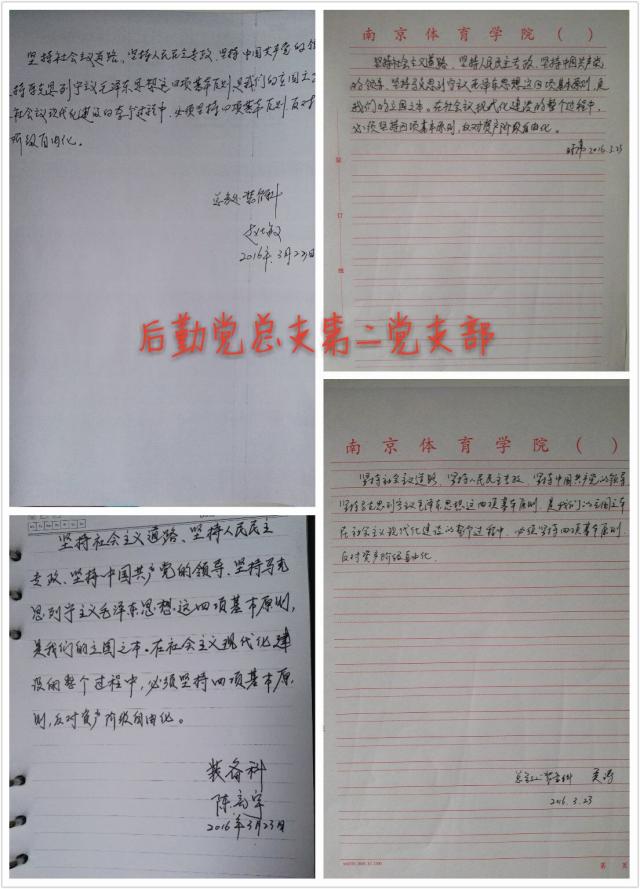 坚持社会主义道路、坚持人民民主专政、坚持中国共产党的领
持马克思列宁主义毛泽东思想这四项基本原则,是我们的立国之
社会主义现代化建设的整个过程中,必须坚持四项基本原则,反对
阶级自由化。
总务处装备科
2016年3月23日
南京体育学院( )
坚持社会主义道路、坚持人民民主专政、坚持中国共产党
的领导、坚持马克思列宁主义毛泽东思想这四项基本原则,是
我们的立国之本。在社会主义现代化建设的整个过程中,
必须坚持四项基本原则,反对资产阶级自由化。
2016.3.23
装
订
线
后勤党总支第二党支部
坚持社会主义道路、坚持人民民主
专政、坚持中国共产党的领导、坚持马克
思列宁主义毛泽东思想这四项基本原则,
是我们的立国之本。在社会主义现代化建
设的整个过程中,必须坚持四项基本原
则,反对资产阶级自由化。
装备科
2016年3月23日
南京体育学院( )
坚持社会主义道路、坚持人民民主专政、坚持中国共产党的领导
坚持马克思列宁主义毛泽东思想这四项基本原则,是我们的立国之本
在社会主义现代化建设的整个过程中,必须坚持四项基本原则
反对资产阶级自由化.
总务处装备科 吴涛
2016.3.23
第 页